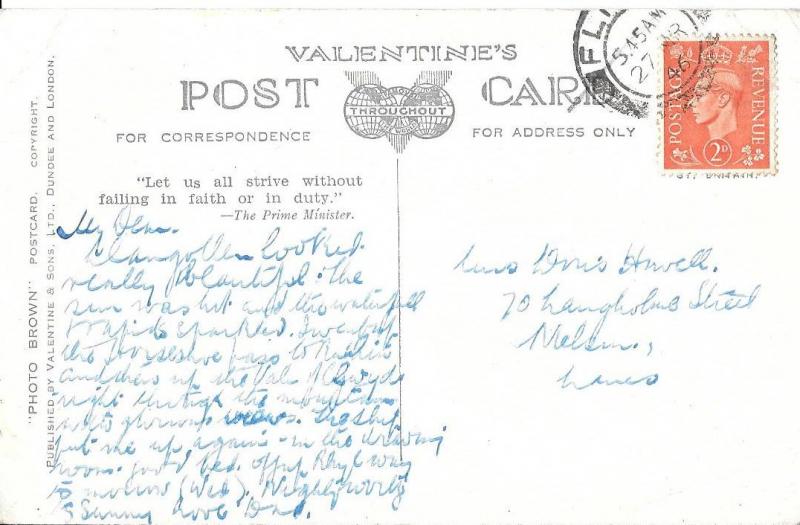 VALENTINE'S
POST CARD
THROUGHOUT
FOR CORRESPONDENCE
FOR ADDRESS ONLY
5.45 AM
27 46
POSTAGE REVENUE
2D
GT. BRITAIN.
"PHOTO BROWN" POSTCARD. COPYRIGHT.
PUBLISHED BY VALENTINE & SONS, LTD., DUNDEE AND LONDON.
"Let us all strive without
failing in faith or in duty."
—The Prime Minister.
My Dear.
Llangollen looked
really beautiful. The
sun was hot and the waterfall
& rapids sparkled. I went by
the Horseshoe pass to Ruthin
and then up the Vale of Clwyd
right through the mountains
with glorious views.
put me up again - in the drawing
room. good bed. off up Rhyl way
tomorrow (Wed).
& Sunny love Dad.
Miss Doris Howell.
70 Langholme Street
Nelson,
Lancs